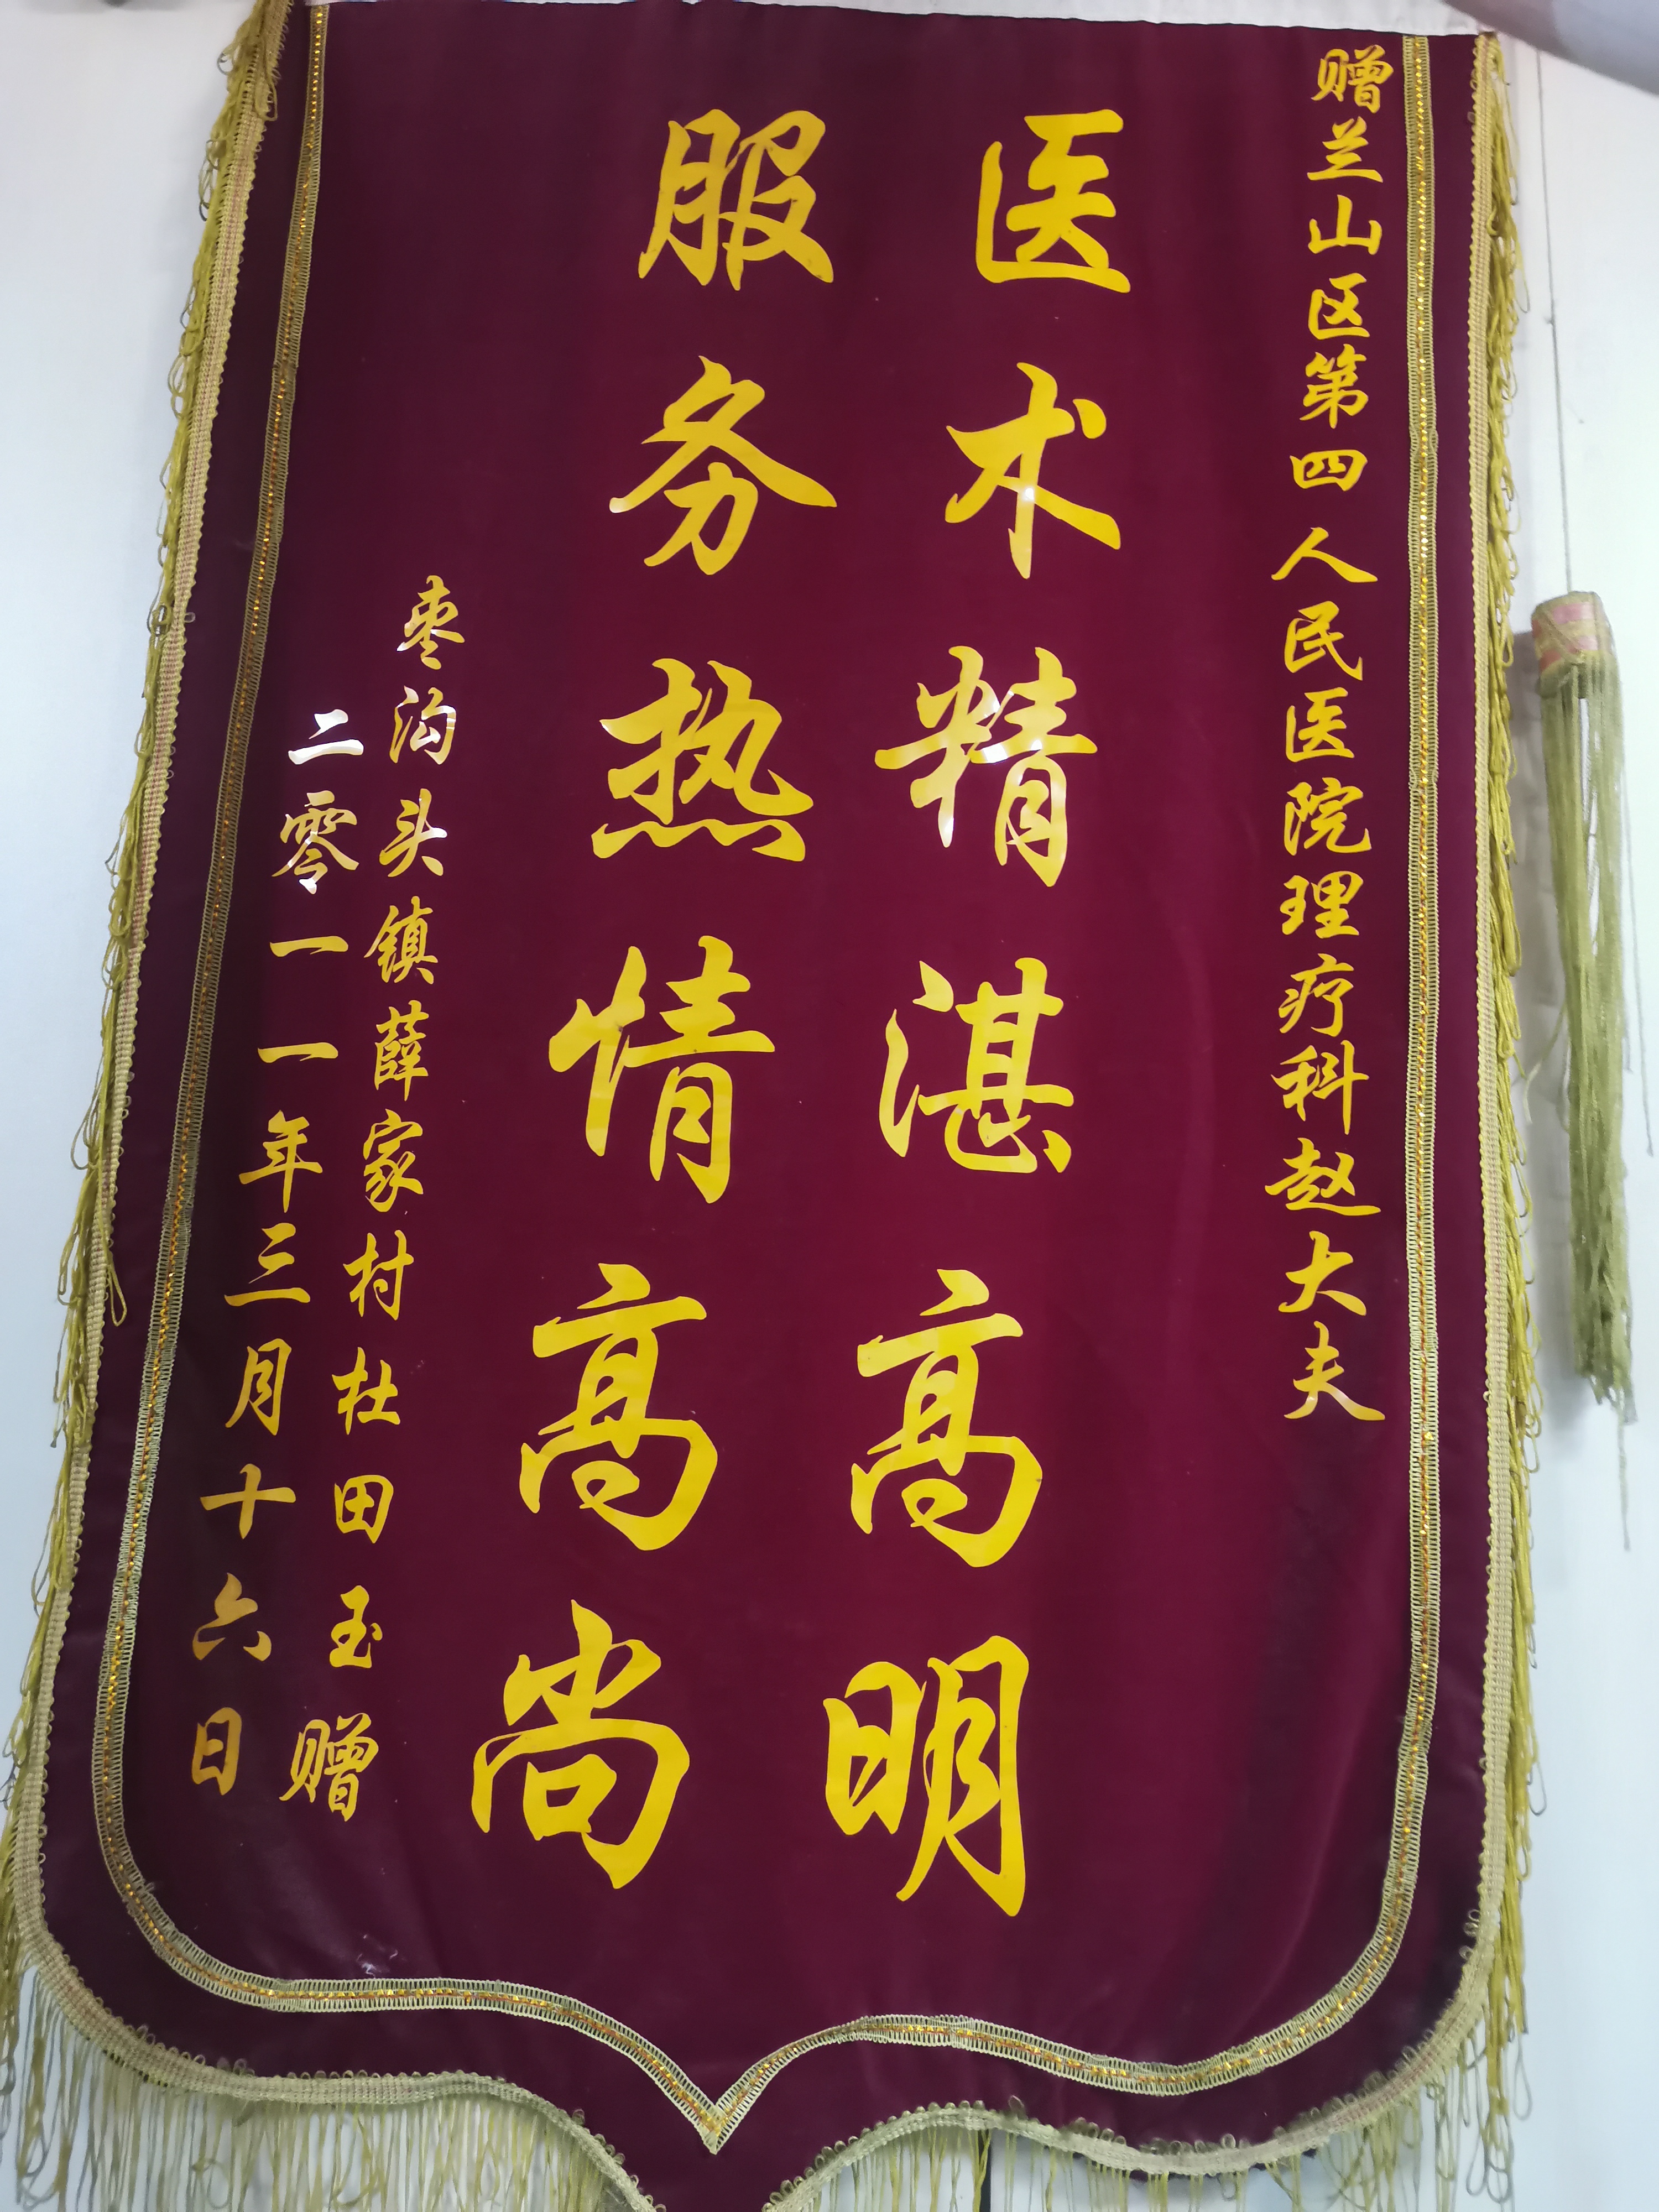 赠兰山区第四人民医院理疗科赵大夫
医术精湛高明
服务热情高尚
枣沟头镇薛家村杜田玉赠
二零一一年三月十六日